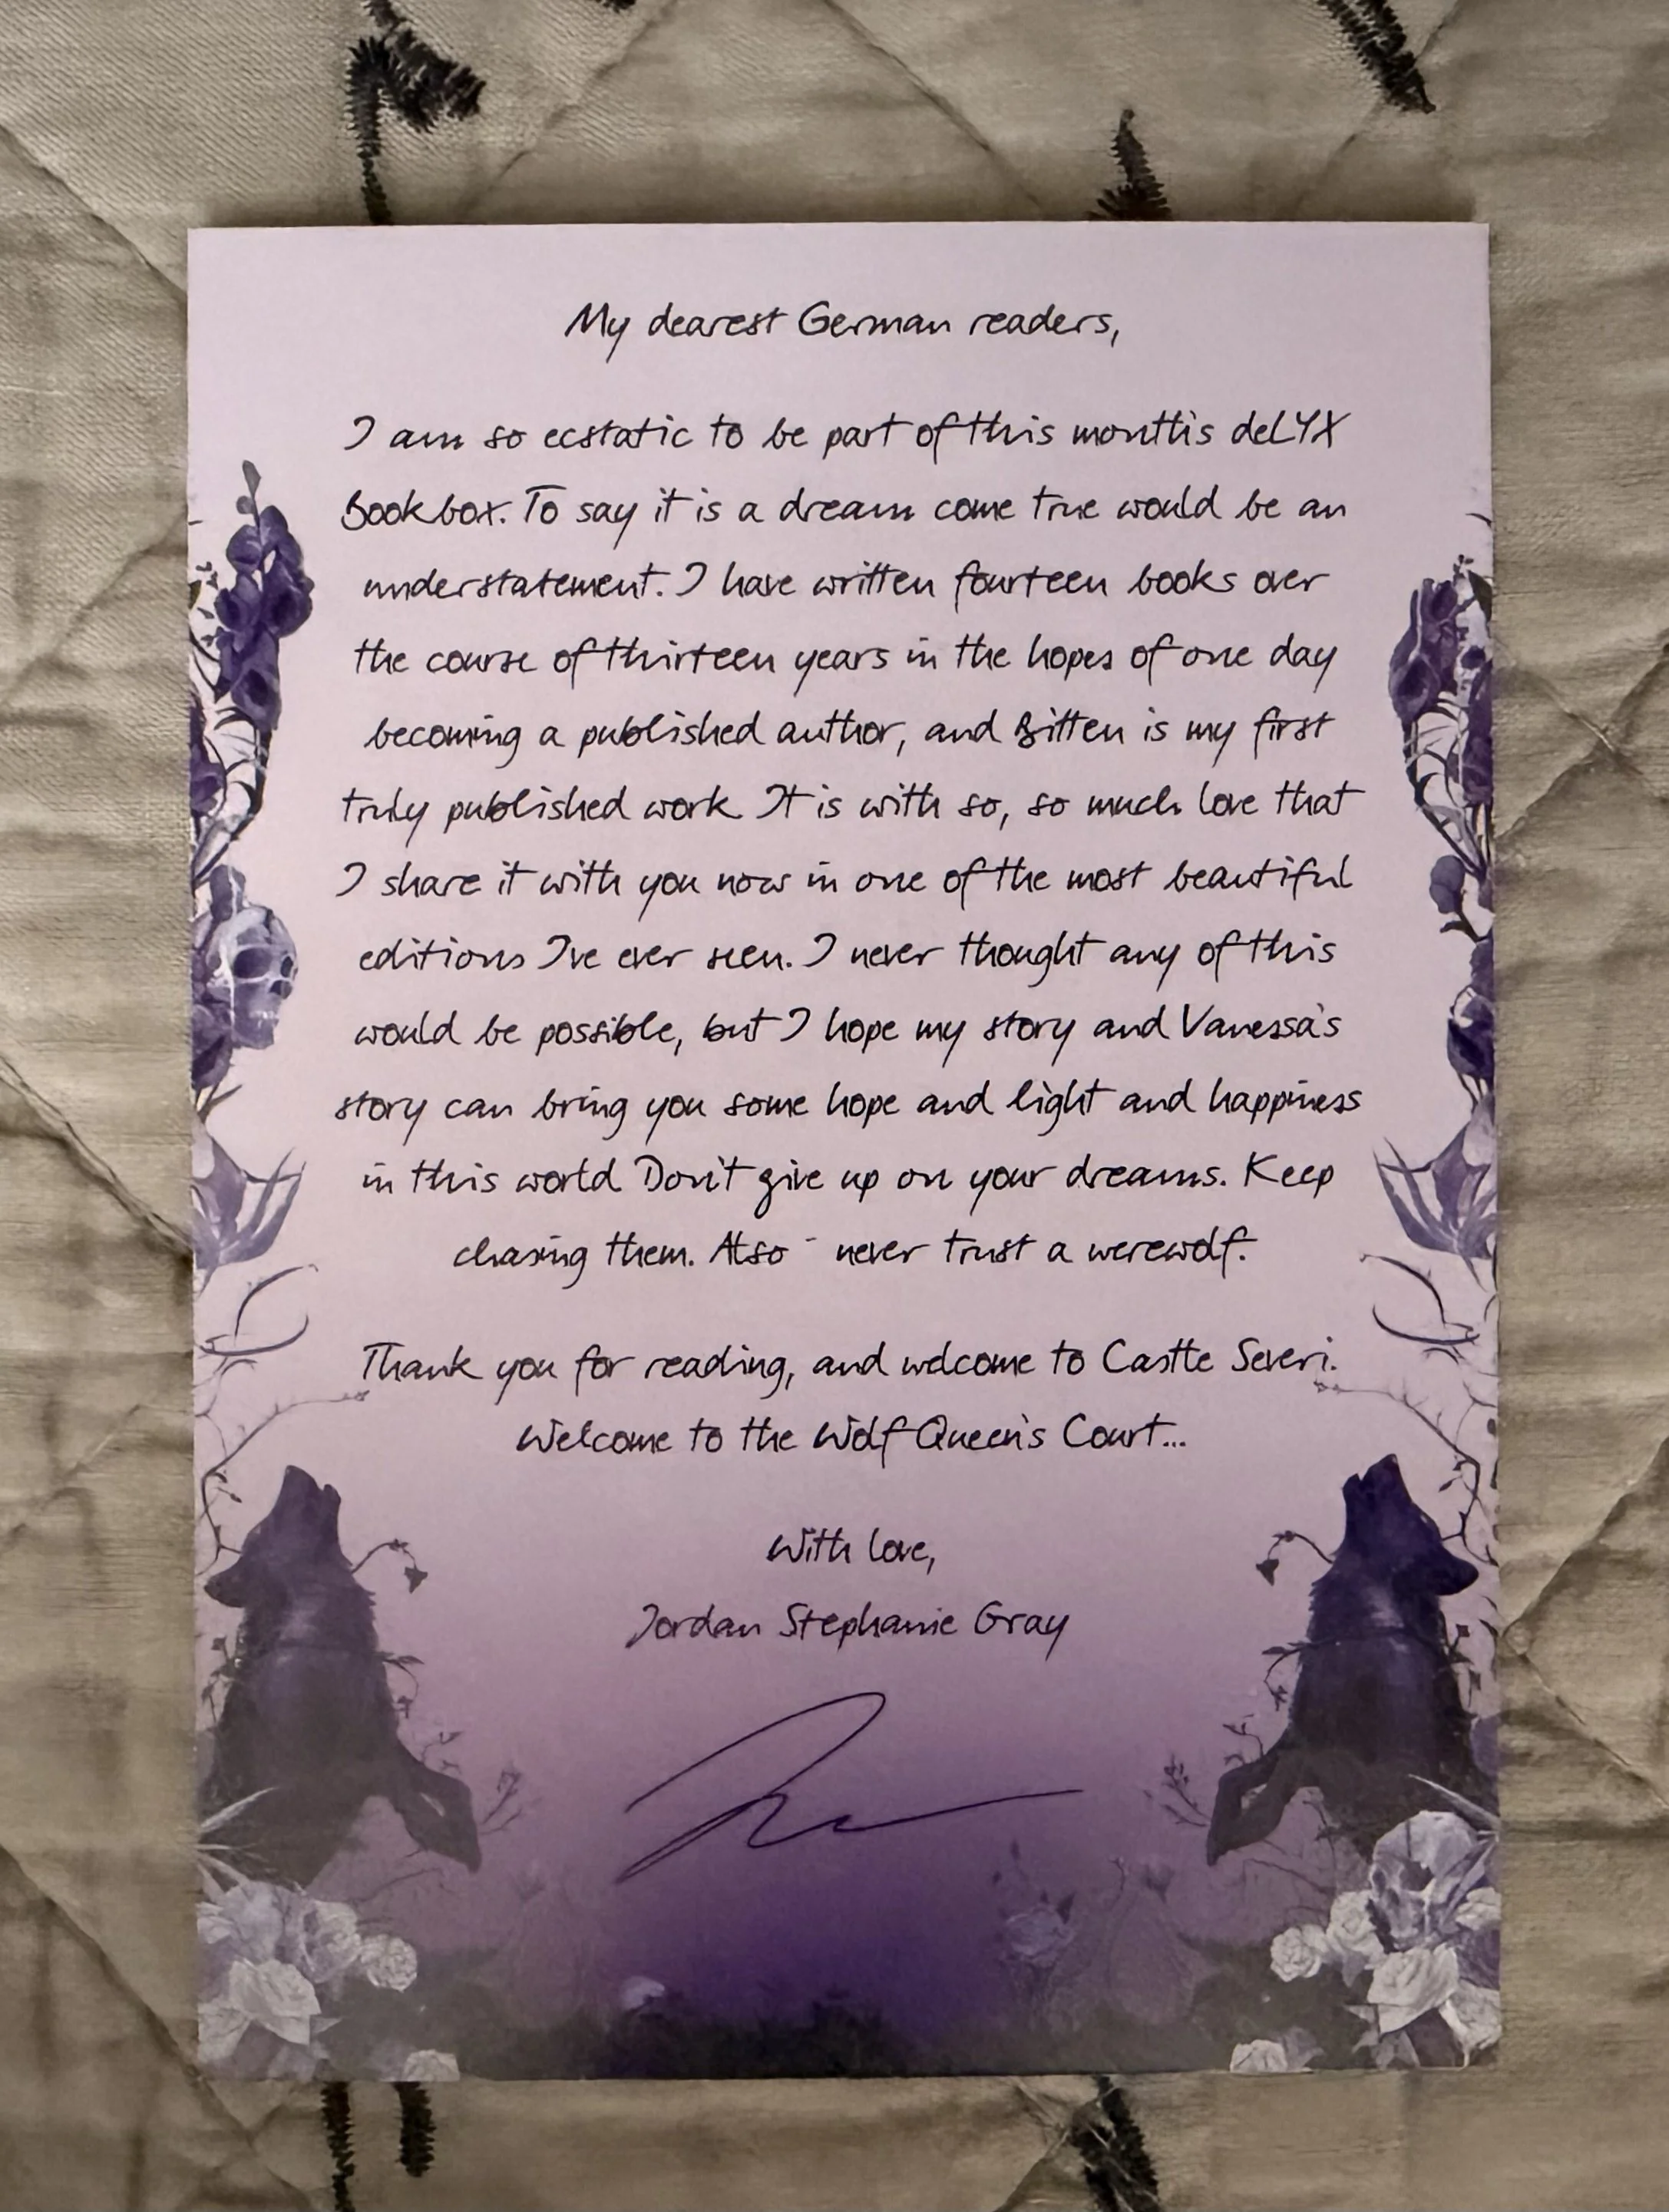 My dearest German readers,
I am so ecstatic to be part of this month's deLYX
Bookbox. To say it is a dream come true would be an
understatement. I have written fourteen books over
the course of thirteen years in the hopes of one day
becoming a published author, and Bitten is my first
truly published work. It is with so, so much love that
I share it with you now in one of the most beautiful
editions I've ever seen. I never thought any of this
would be possible, but I hope my story and Vanessa's
story can bring you some hope and light and happiness
in this world. Don't give up on your dreams. Keep
chasing them. Also - never trust a werewolf.
Thank you for reading, and welcome to Castle Severi.
Welcome to the Wolf Queen's Court...
With love,
Jordan Stephanie Gray